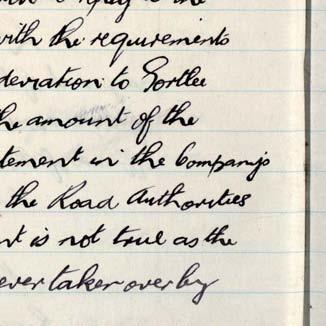 with the requirements
deviation to Gortlee
the amount of the
tement in the Company's
the Road Authorities
nt is not true as the
ever taken over by